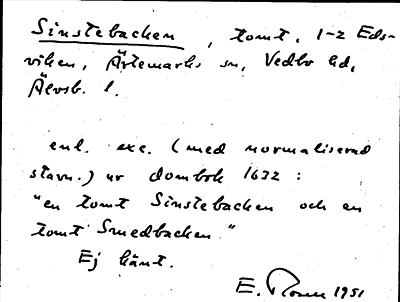 Sinstebacken, tomt, 1-2 Eds-
viken, Ärtemarks sn, Vedbo hd,
Älvsb. l.
enl. exc. (med normaliserad
stavn.) ur dombok 1632 :
"en tomt Sinstebacken och en
tomt Smedbacken."
Ej känt.
E. 1951